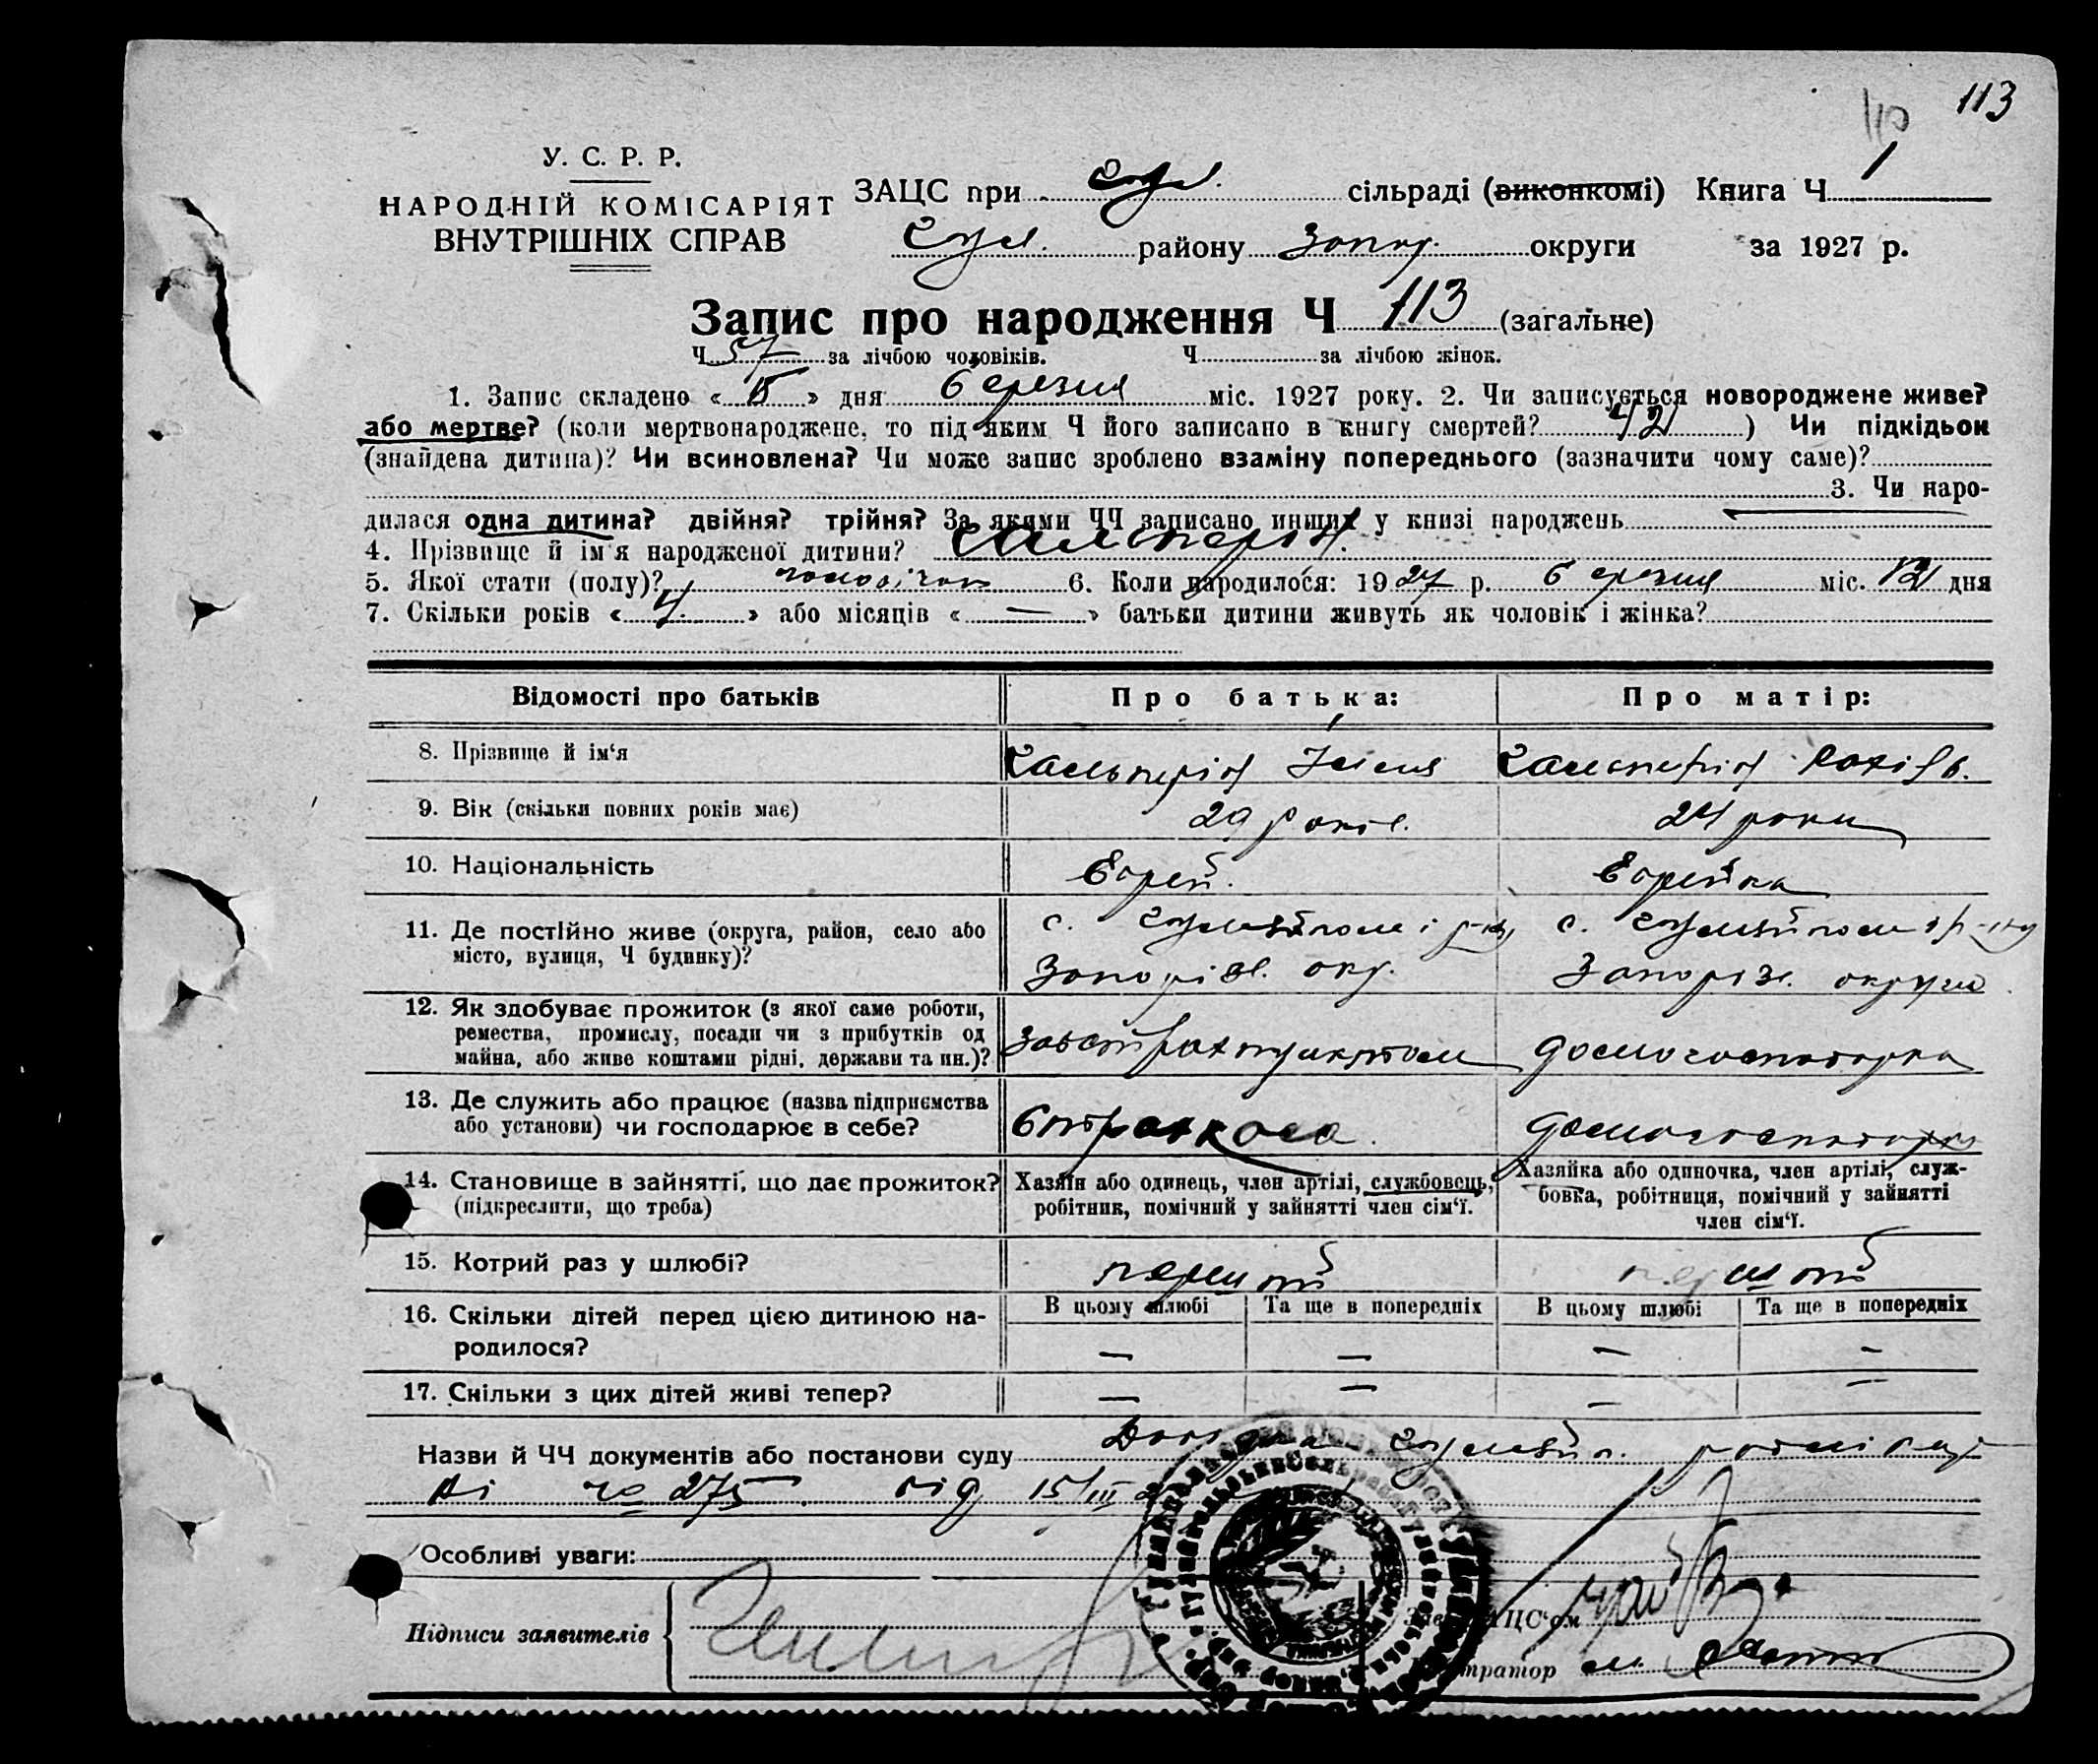 110 113
У. С. Р. Р.
НАРОДНІЙ КОМІСАРІЯТ
ВНУТРІШНІХ СПРАВ
ЗАЦС при Гул. сільраді (виконкомі) Книга Ч 1
Гул. району Запор. округи за 1927 р.
Запис про народження Ч 113 (загальне)
Ч 57 за лічбою чоловіків. Ч за лічбою жінок.
1. Запис складено « 15 » дня березня міс. 1927 року. 2. Чи записується новороджене живе?
або мертве? (коли мертвонароджене, то під яким Ч його записано в книгу смертей? 42 ) Чи підкідьок
(знайдена дитина)? Чи всиновлена? Чи може запис зроблено взаміну попереднього (зазначити чому саме)?
3. Чи наро-
дилася одна дитина? двійня? трійня? За якими ЧЧ записано инших у книзі народжень
4. Прізвище й ім'я народженої дитини? Гальперін.
5. Якої стати (полу)? чоловічок 6. Коли народилося: 1927 р. березня міс. 12 дня
7. Скільки років « 4 » або місяців « — » батьки дитини живуть як чоловік і жінка?
Відомості про батьків Про батька: Про матір:
8. Прізвище й ім'я Гальперін Гальперін Рахіль.
9. Вік (скільки повних років має) 29 років. 24 роки
10. Національність Єврей. Єврейка
11. Де постійно живе (округа, район, село або
місто, вулиця, Ч будинку)?
с. Гуляйполе і р-ну
Запоріз. окр.
с. Гуляйполе і р-ну
Запоріз. округи
12. Як здобуває прожиток (з якої саме роботи,
ремества, промислу, посади чи з прибутків од
майна, або живе коштами рідні, держави та ин.)?
Завстрахпунктом домогосподарка
13. Де служить або працює (назва підприємства
або установи) чи господарює в себе?
Страхкаса домогосподарка
14. Становище в зайнятті, що дає прожиток?
(підкреслити, що треба)
Хазяїн або одинець, член артілі, службовець,
робітник, помічний у зайнятті член сім'ї.
Хазяйка або одиночка, член артілі, служ-
бовка, робітниця, помічний у зайнятті
член сім'ї.
15. Котрий раз у шлюбі? перший перший
В цьому шлюбі Та ще в попередніх В цьому шлюбі Та ще в попередніх
16. Скільки дітей перед цією дитиною на-
родилося? — — — —
17. Скільки з цих дітей живі тепер? — — — —
Назви й ЧЧ документів або постанови суду Довідка Гуляйп.
№ 275 від 15/III
Особливі уваги:
Підписи заявителів
Зав. ЗАЦС'ом
Реєстратор